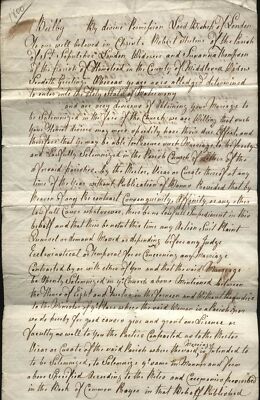 1800
Beilby by divine Permission Lord Bishop of London
To our well beloved in Christ, Robert of the Parish
of St. Sepulchre London Widower and Susanna Thompson
of the Parish of in the County of Middlesex Widow
Sendeth Greeting Whereas ye are as is alledged determined
to enter into the Holy State of Matrimony
and are very desirous of obtaining your Marriage to
be solemnized in the face of the Church, we are willing that such
your Honest desires may more speedily have their due Effect and
therefore that ye may be able to procure such Marriage to be freely
and lawfully Solemnized in the Parish Church of either of the
aforesaid parishes by the Rector, Vicar or Curate thereof at any
time of the Year without Publication of Banns Provided that by
Reason of any Pre contract Consanguinity, Affinity or any other
lawfull Cause whatsoever, there be no lawfull impediment in this
behalf and that there be not at this time any Action Suit Plaint
Quarrel or Demand Moved or depending before any Judge
Ecclesiastical or Temporal for or concerning any Marriage
Contracted by or with either of You and that the said Marriage
be Openly Solemnized in ye Church above Mentioned between
the Hours of Eight and Twelve in the forenoon and Without Prejudice
to the Minister of ye place where the said Woman is a parishioner
we do hereby for good causes give and grant our License or
Faculty as well to You the Parties Contracted as to the Rector
Vicar or Curate of the said Parish where the said Marriage is intended to
to be Solemnized, to Solemnize ye same in Manner and form
above Specified According to the Rites and Ceremonies prescribed
in the Book of Common Prayer in that Behalf Published